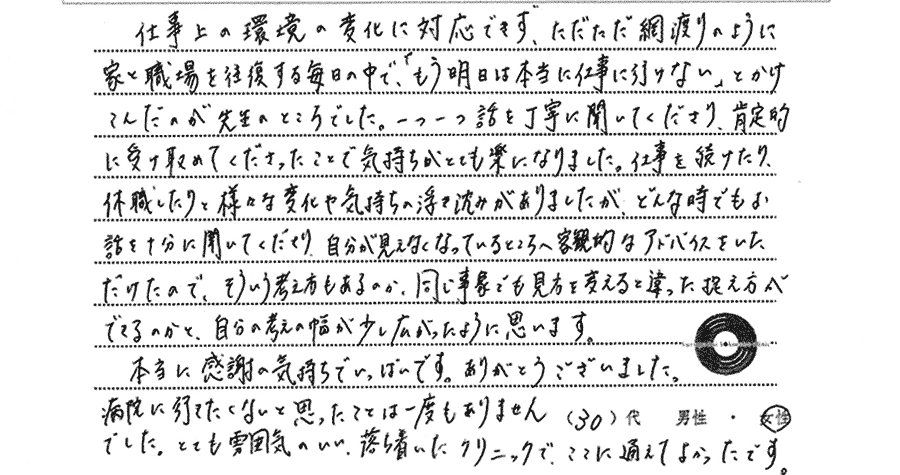 仕事上の環境の変化に対応できず、ただただ綱渡りのように
家と職場を往復する毎日の中で、「もう明日は本当に仕事に行けない」とかけ
こんだのが先生のところでした。一つ一つ話を丁寧に聞いてくださり、肯定的
に受け取めてくださったことで気持ちがとても楽になりました。仕事を続けたり、
休職したりと様々な変化や気持ちの浮き沈みがありましたが、どんな時でもお
話を十分に聞いてくださり、自分が見えなくなっているところへ客観的なアドバイスをいた
だけたので、そういう考え方もあるのか、同じ事象でも見方を変えると違った捉え方が
できるのかと、自分の考えの幅が少し広がったように思います。
本当に感謝の気持ちでいっぱいです。ありがとうございました。
病院に行きたくないと思ったことは一度もありません (30)代 男性 ・ 女性
でした。とても雰囲気のいい、落ち着いたクリニックで、ここに通えてよかったです。